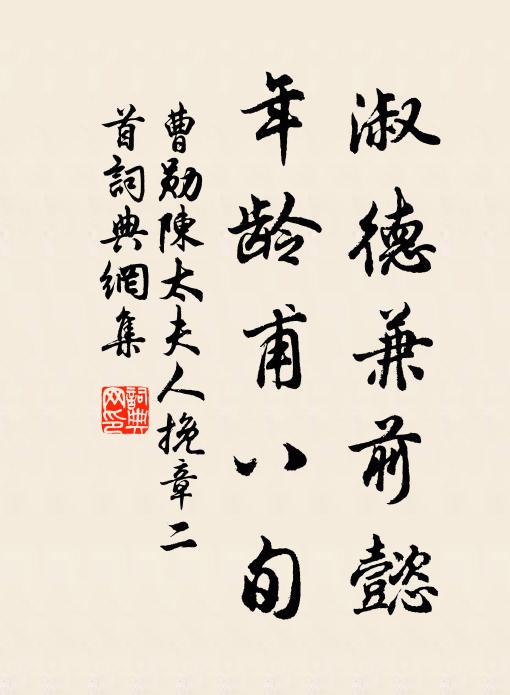 淑德兼前懿
年龄甫八旬
曹勛陳太夫人挽章二
首詞典網集
詞典
网印